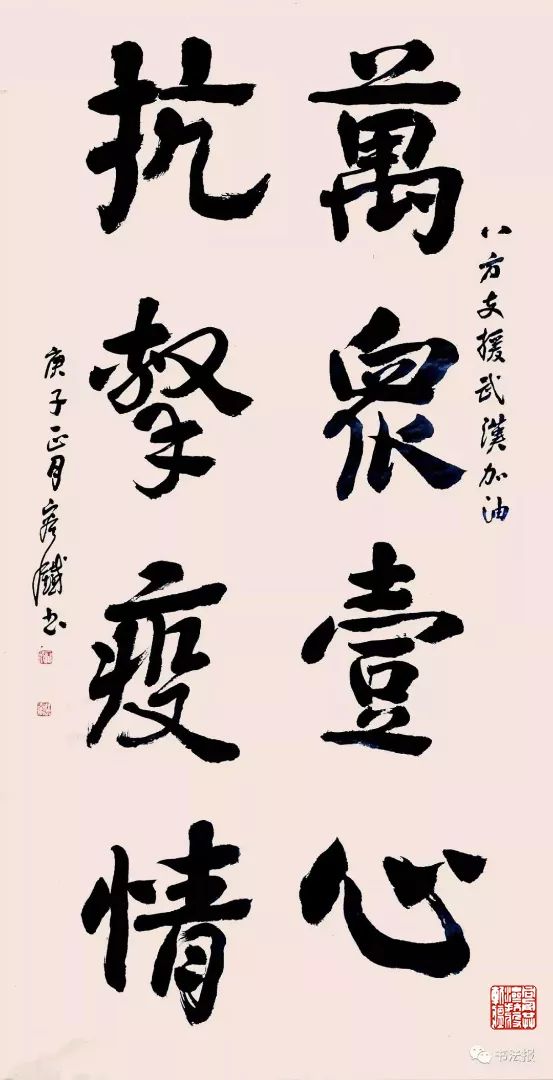 八方支援武漢加油
萬衆壹心
抗擊疫情
庚子正月容鐵书
书法报